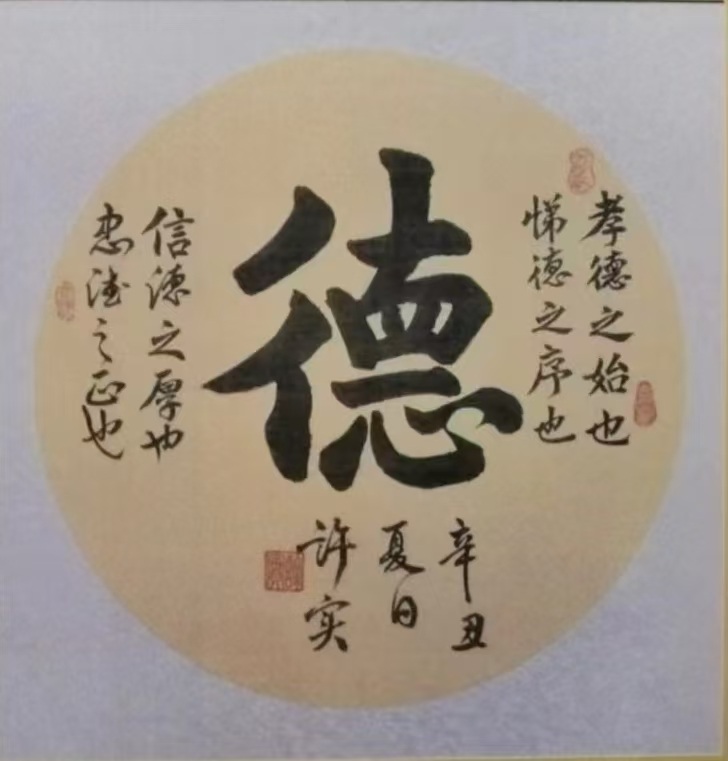 德
孝德之始也
悌德之序也
信德之厚也
忠德之正也
辛丑
夏日
许实